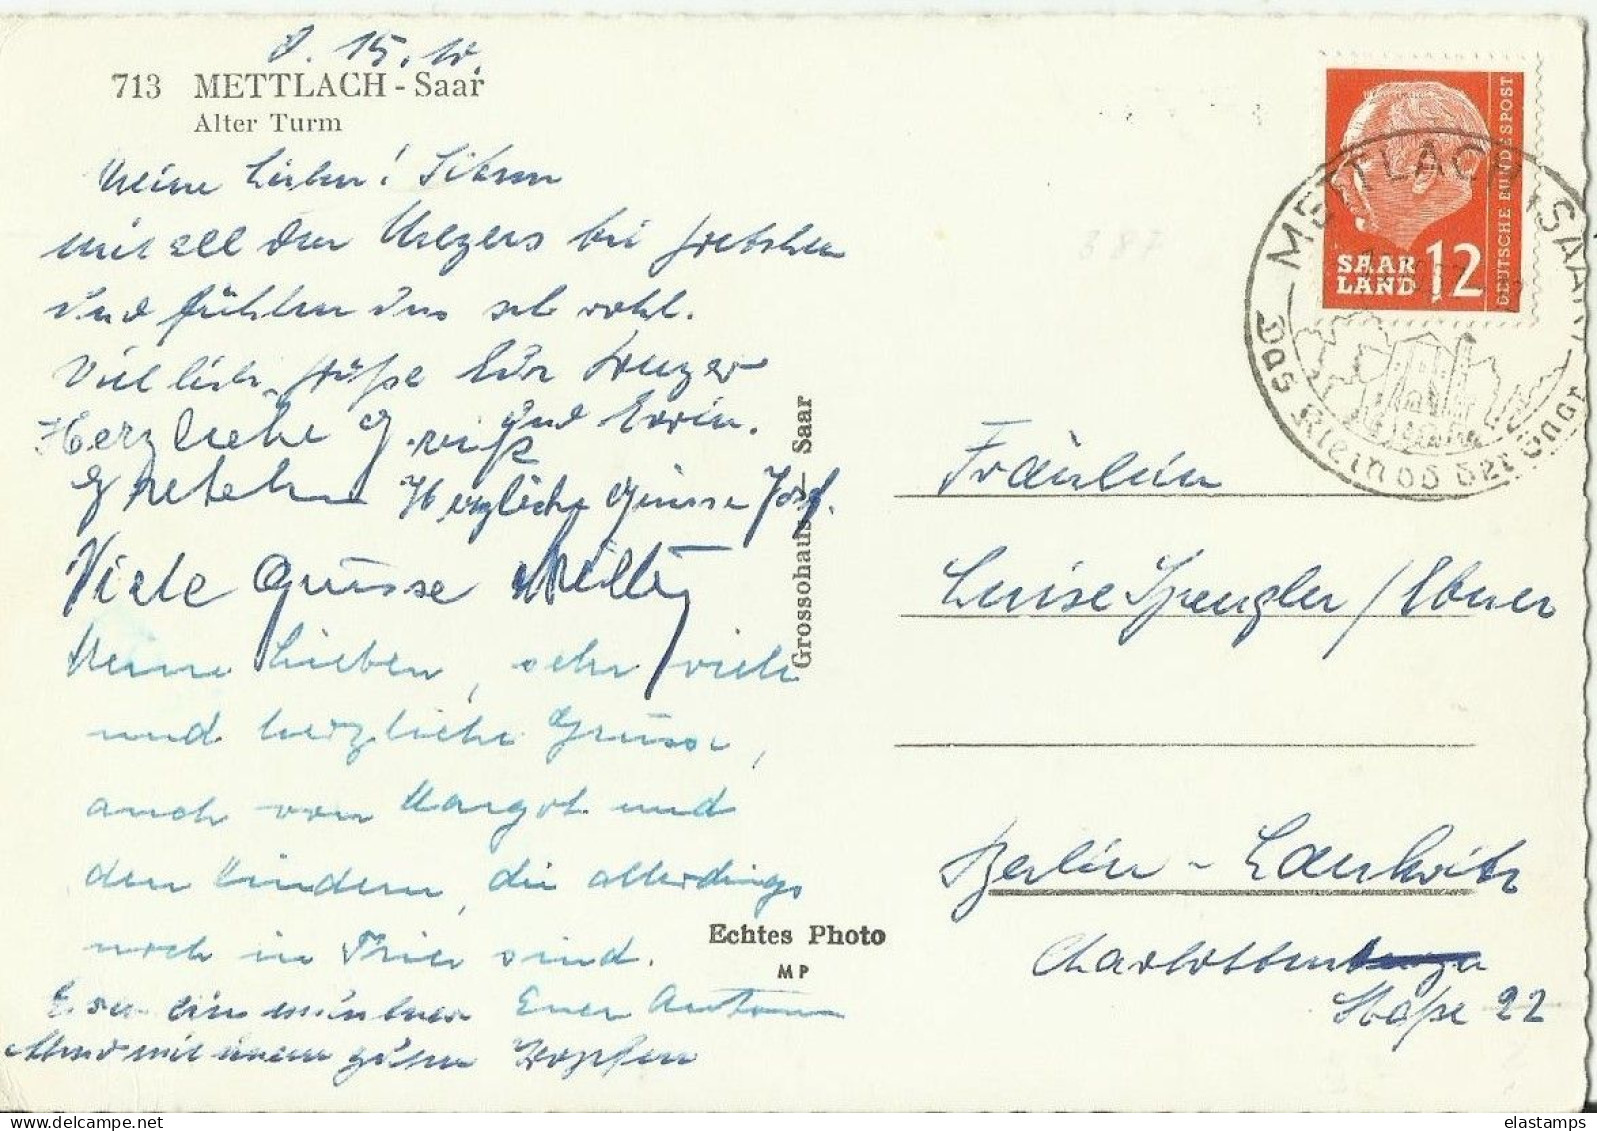 d. 15. 10.
713 METTLACH - Saar
Alter Turm
Meine Lieben! Sitzen
mit all den Metzers bei Gretchen
und fühlen uns sehr wohl.
Viel liebe Grüße Eure
und Erwin.
Herzliche Grüß
Gretchen Herzliche Grüsse Josef.
Viele Grüsse Milly
Meine Lieben, sehr viele
und herzliche Grüsse,
auch von Margot und
den Kindern, die allerdings
noch in Trier sind.
Euer Anton
mit einem guten Tropfen
Grossohaus - Saar
Echtes Photo
MP
DEUTSCHE BUNDESPOST
SAAR
LAND 12
METTLACH (SAAR)
Das Kleinod der Saar
387
Fräulein
Luise Spengler / Ebner
Berlin - Lankwitz
Charlottenburger
Straße 22
elastamps